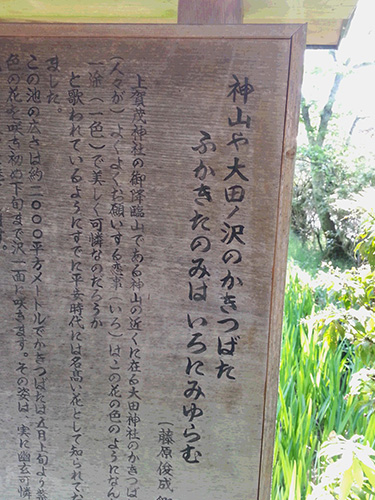 神山や大田ノ沢のかきつばた
ふかきたのみは いろにみゆらむ
(藤原俊成
上賀茂神社の御降臨山である神山の近くに在る大田神社のかきつば
(人々が)よくよくお願いする恋事(いろ)はこの花の色のようになん
一途(一色)で美しく可憐なのだろうか
と歌われているようにすでに平安時代には名高い花として知られてお
ました。
この池の広さは約二〇〇〇平方メートルでかきつばたは五月上旬より
色の花を咲き初め下旬まで沢一面に咲きます。その姿は 実に幽玄可憐